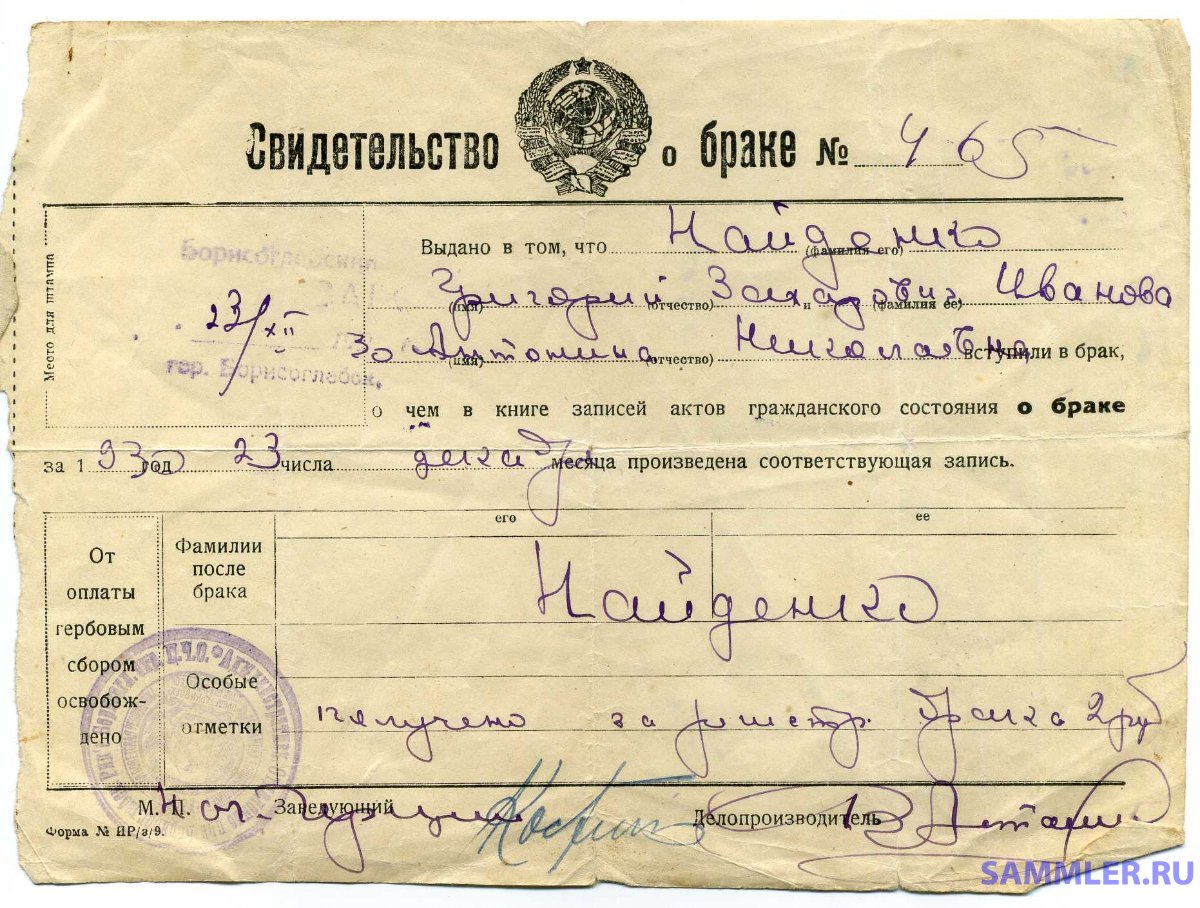 Свидетельство о браке № 465
Место для штампа
Борисоглебский
ЗАГС
23/XII 30
гор. Борисоглебск,
Выдано в том, что Найденко
(фамилия его)
Григорий Захарович и Иванова
(имя) (отчество) (фамилия ее)
Антонина Николаевна вступили в брак,
(имя) (отчество)
о чем в книге записей актов гражданского состояния о браке
за 1930 год 23 числа декабр месяца произведена соответствующая запись.
его ее
От оплаты гербовым сбором освобождено
Фамилии после брака
Найденко
Особые отметки
получено за регистр. брака 2 руб
М. П. Заведующий Делопроизводитель
Форма № ИР/з/9.
SAMMLER.RU